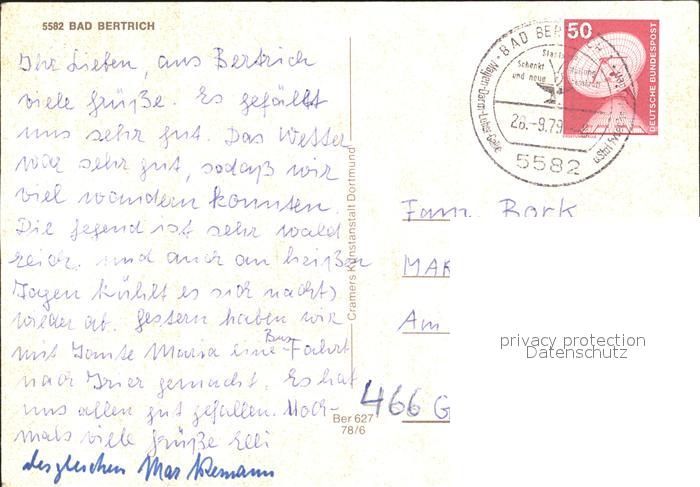 5582 BAD BERTRICH
Ihr Lieben, aus Bertrich
viele Grüße. Es gefällt
uns sehr gut. Das Wetter
war sehr gut, sodaß wir
viel wandern konnten.
Die Gegend ist sehr wald
reich. und auch an heißen
Tagen kühlt es sich nachts
wieder ab. Gestern haben wir
mit Tante Maria eine Bus-Fahrt
nach Trier gemacht. Es hat
uns allen gut gefallen. Noch-
mals viele Grüße Elli
desgleichen
Cramers Kunstanstalt Dortmund
Ber 627
78/6
BAD BERTRICH
Schenkt
und neue
Magen-Darm-Leber-Galle
26.-9.79
5582
50
DEUTSCHE BUNDESPOST
Fam. Bork
MAR
Am
466 G
privacy protection
Datenschutz